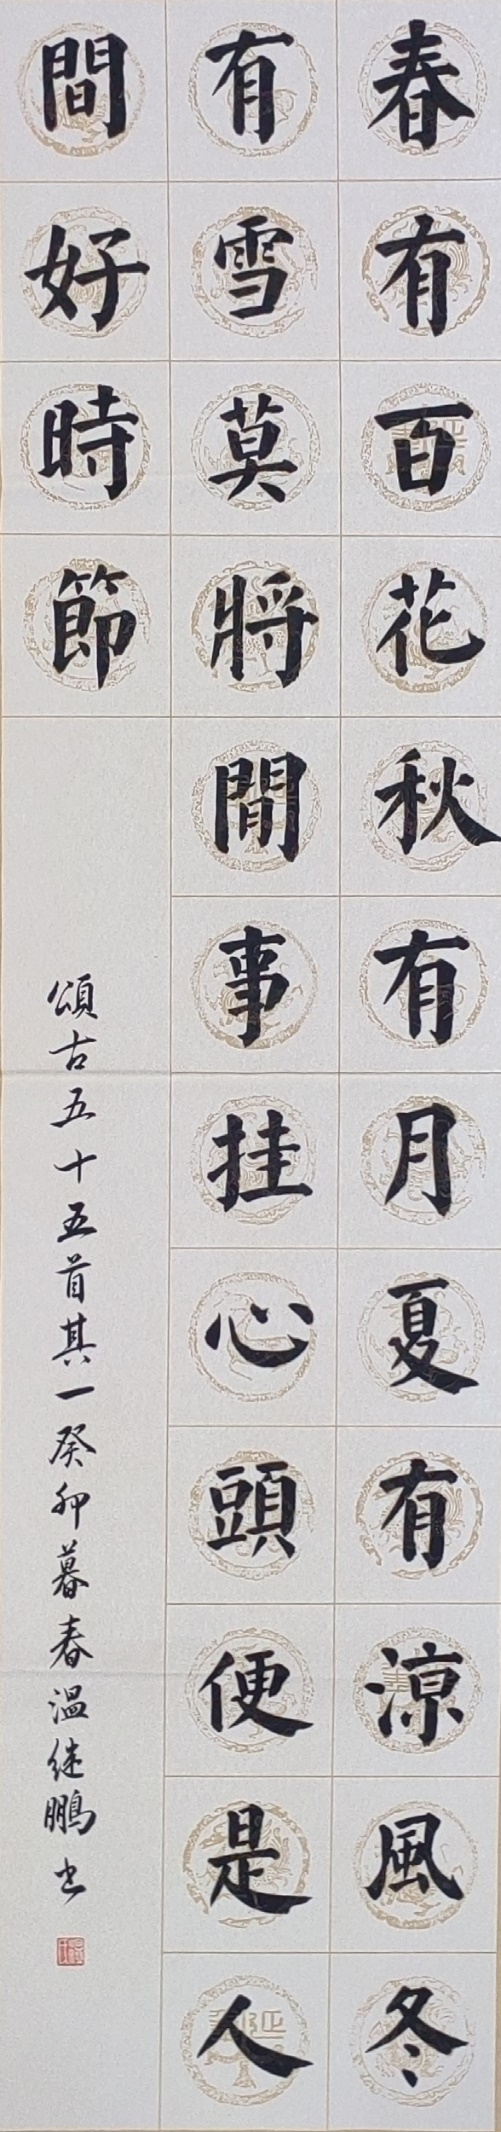 春有百花秋有月夏有涼風冬
有雪莫將閒事挂心頭便是人
間好時節
頌古五十五首其一癸卯暮春溫继鹏书